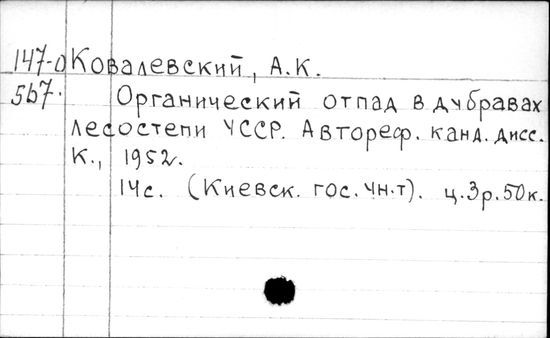 147-О Ковалевский, А.К.
567. Органический отпад в дубравах
лесостепи УССР. Автореф. канд. дисс.
К., 1952.
14с. (Киевск. гос. ун-т). ц.3р.50к.